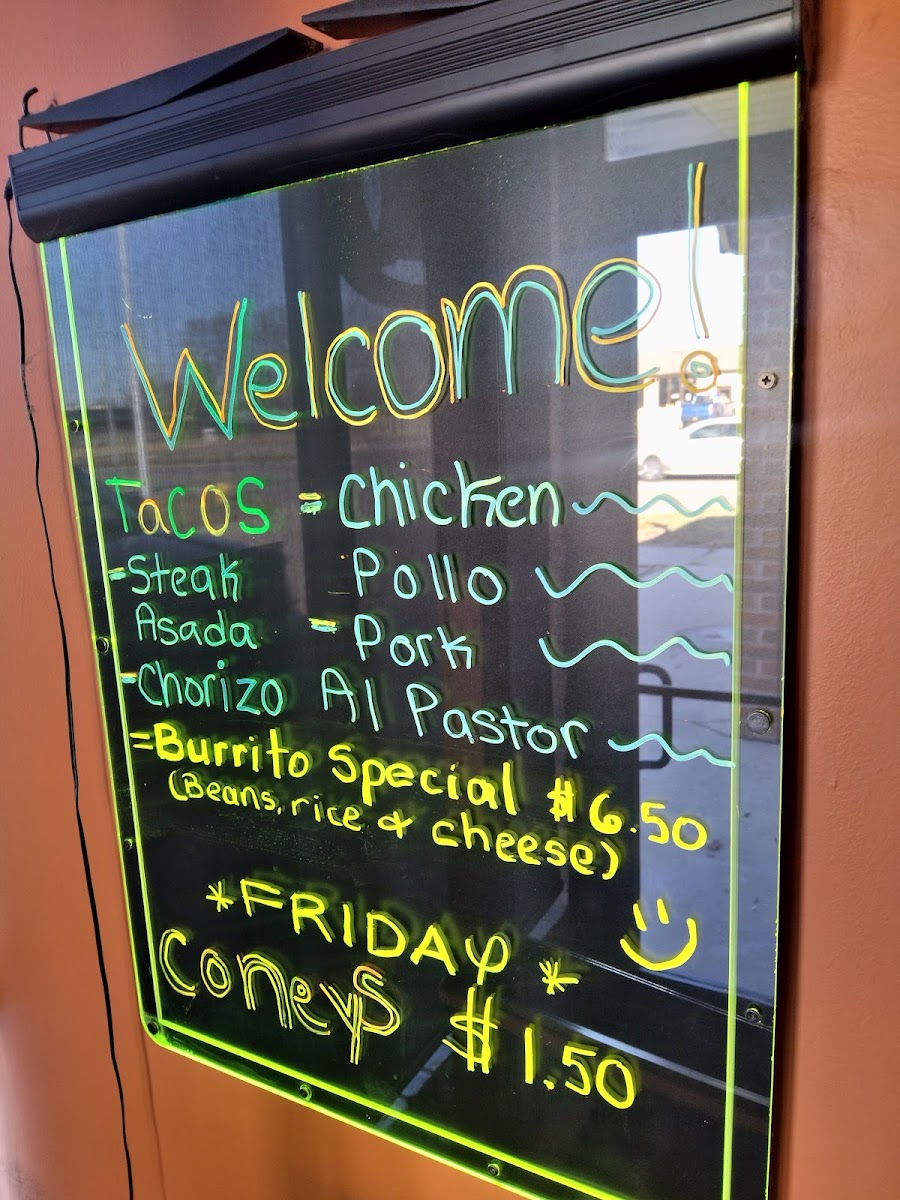 Welcome!
Tacos = Chicken
-Steak Pollo
Asada = Pork
-Chorizo Al Pastor
=Burrito Special $6.50
(Beans, rice & cheese)
*FRIDAY*
Coneys $1.50